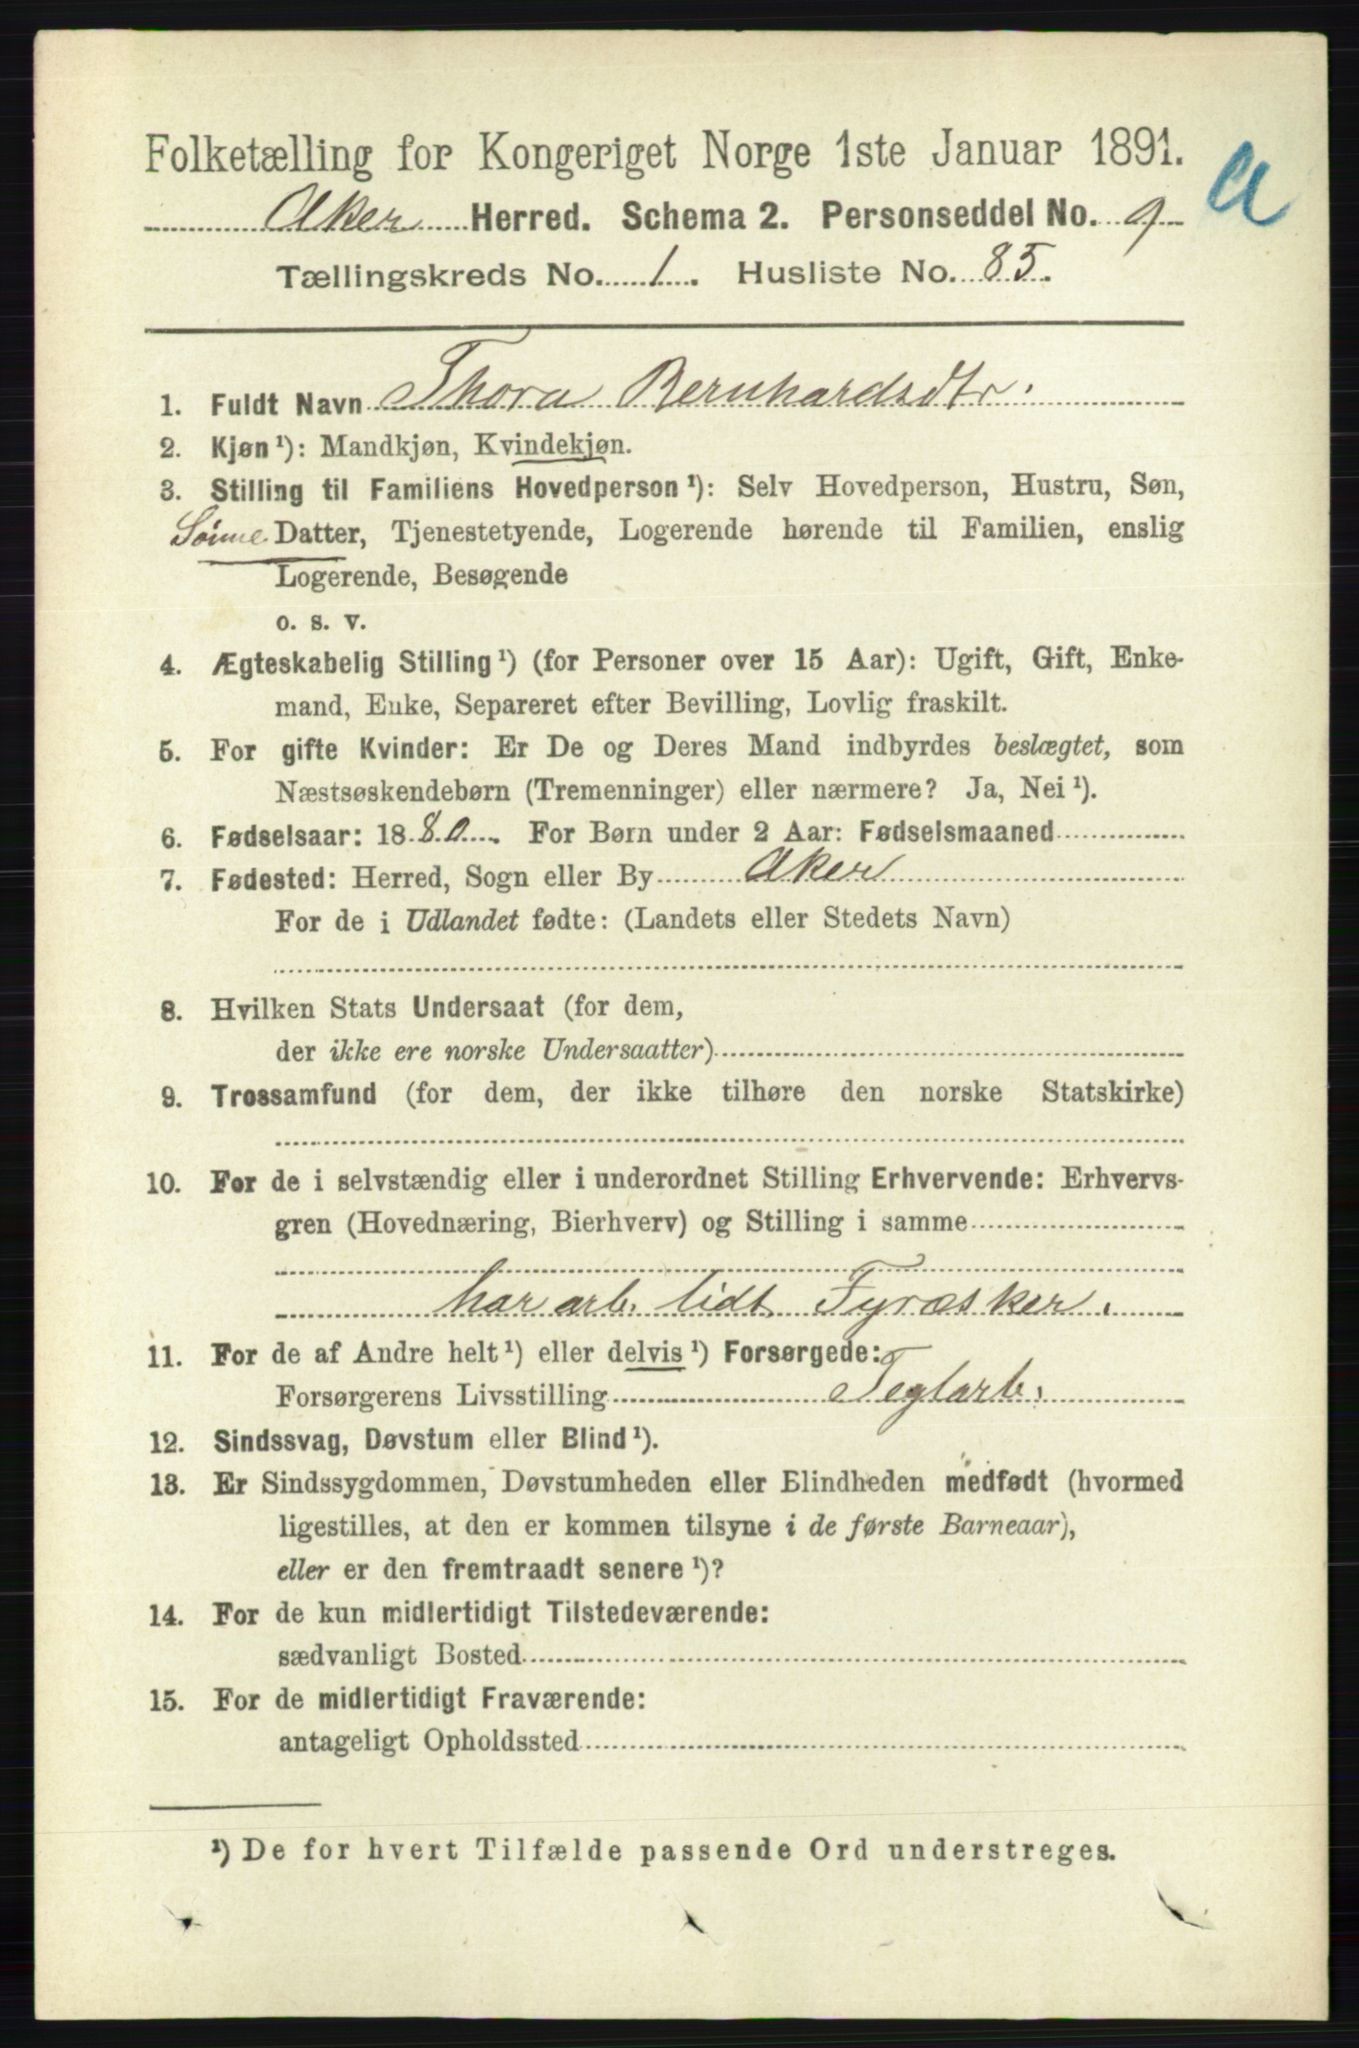 Folketælling for Kongeriget Norge 1ste Januar 1891.
a
Aker Herred. Schema 2. Personseddel No. 9
Tællingskreds No. 1. Husliste No. 85.
1. Fuldt Navn Thora Bernhardsdtr.
2. Kjøn¹): Mandkjøn, Kvindekjøn.
3. Stilling til Familiens Hovedperson¹): Selv Hovedperson, Hustru, Søn,
Sønne Datter, Tjenestetyende, Logerende hørende til Familien, enslig
Logerende, Besøgende
o. s. v.
4. Ægteskabelig Stilling¹) (for Personer over 15 Aar): Ugift, Gift, Enke-
mand, Enke, Separeret efter Bevilling, Lovlig fraskilt.
5. For gifte Kvinder: Er De og Deres Mand indbyrdes beslægtet, som
Næstsøskendebørn (Tremenninger) eller nærmere? Ja, Nei¹).
6. Fødselsaar: 1880. For Børn under 2 Aar: Fødselsmaaned
7. Fødested: Herred, Sogn eller By Aker
For de i Udlandet fødte: (Landets eller Stedets Navn)
8. Hvilken Stats Undersaat (for dem,
der ikke ere norske Undersaatter)
9. Trossamfund (for dem, der ikke tilhøre den norske Statskirke)
10. For de i selvstændig eller i underordnet Stilling Erhvervende: Erhvervs-
gren (Hovednæring, Bierhverv) og Stilling i samme
har arb. lidt Fyræsker.
11. For de af Andre helt¹) eller delvis¹) Forsørgede:
Forsørgerens Livsstilling Teglarb.
12. Sindssvag, Døvstum eller Blind¹).
13. Er Sindssygdommen, Døvstumheden eller Blindheden medfødt (hvormed
ligestilles, at den er kommen tilsyne i de første Barneaar),
eller er den fremtraadt senere¹)?
14. For de kun midlertidigt Tilstedeværende:
sædvanligt Bosted
15. For de midlertidigt Fraværende:
antageligt Opholdssted
¹) De for hvert Tilfælde passende Ord understreges.